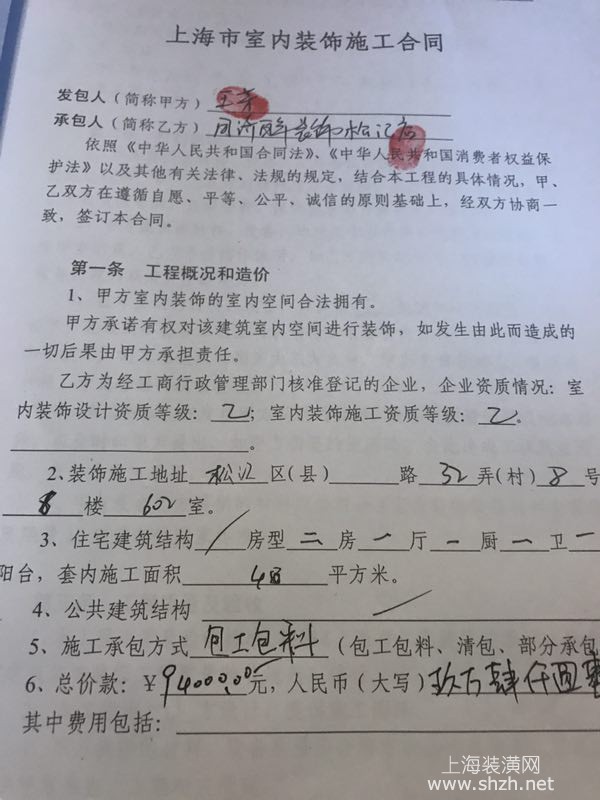 上海市室内装饰施工合同
发包人（简称甲方）王
承包人（简称乙方）同济 装饰 松江店
依照《中华人民共和国合同法》、《中华人民共和国消费者权益保
护法》以及其他有关法律、法规的规定，结合本工程的具体情况，甲、
乙双方在遵循自愿、平等、公平、诚信的原则基础上，经双方协商一
致，签订本合同。
第一条 工程概况和造价
1、甲方室内装饰的室内空间合法拥有。
甲方承诺有权对该建筑室内空间进行装饰，如发生由此而造成的
一切后果由甲方承担责任。
乙方为经工商行政管理部门核准登记的企业，企业资质情况：室
内装饰设计资质等级：乙；室内装饰施工资质等级：乙。
。
2、装饰施工地址 松江 区(县) 路 32 弄(村) 8 号
8 楼 602 室。
3、住宅建筑结构 / 房型 二 房 一 厅 一 厨 一 卫 一
阳台，套内施工面积 48 平方米。
4、公共建筑结构 /
5、施工承包方式 包工包料 （包工包料、清包、部分承包
6、总价款：￥94000.00元，人民币（大写）玖万肆仟圆整
其中费用包括：
上海装潢网
www.shzh.net